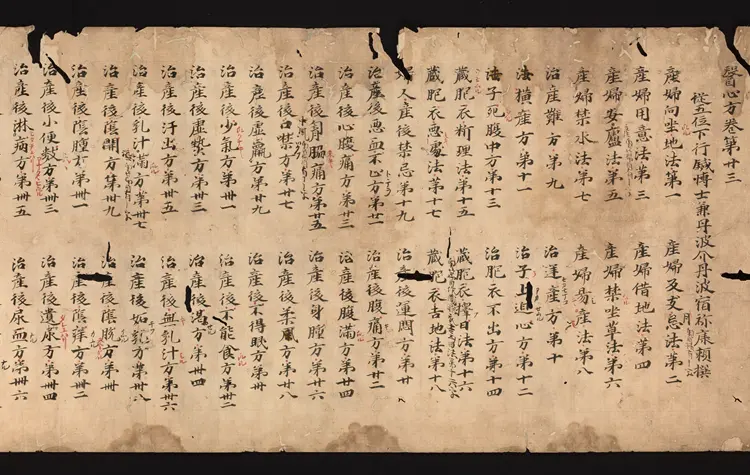 醫心方卷第廿三
從五位下行鍼博士兼丹波介丹波宿祢康頼撰
産婦向坐地法第一　産婦反支忌法第二
産婦用意法第三　産婦借地法第四
産婦安廬法第五　産婦禁坐草法第六
産婦禁水法第七　産婦易産法第八
治産難方第九　治逆産方第十
治横産方第十一　治子上迫心方第十二
治子死腹中方第十三　治胞衣不出方第十四
藏胞衣斷理法第十五　藏胞衣擇日法第十六
藏胞衣惡處法第十七　藏胞衣吉地法第十八
婦人産後禁忌第十九　治産後運悶方第廿
治産後惡血不止方第廿一　治産後腹痛方第廿二
治産後心腹痛方第廿三　治産後腹滿方第廿四
治産後胷脇痛方第廿五　治産後身腫方第廿六
治産後口噤方第廿七　治産後柔風方第廿八
治産後虚羸方第廿九　治産後不得眠方第卅
治産後少氣方第卅一　治産後不能食方第卅二
治産後虚熱方第卅三　治産後渇方第卅四
治産後汗出方第卅五　治産後無乳汁方第卅六
治産後乳汁滿方第卅七　治産後妬乳方第卅八
治産後陰開方第卅九　治産後陰脱方第卌
治産後陰腫方第卌一　治産後陰痒方第卌二
治産後小便數方第卌三　治産後遺尿方第卌四
治産後淋病方第卌五　治産後尿血方第卌六